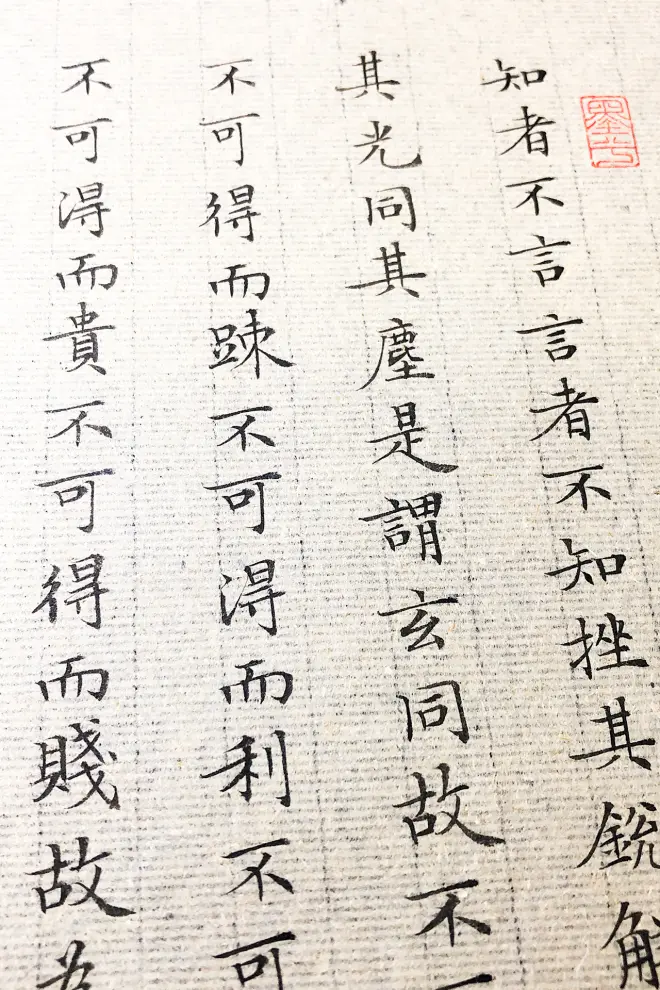 知者不言言者不知挫其銳解
其光同其塵是謂玄同故不可
不可得而踈不可得而利不可
不可得而貴不可得而賤故為